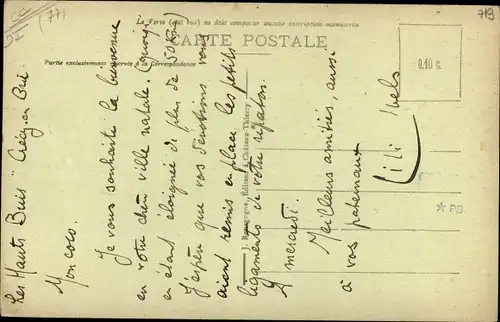 Le Verso (côté vue) ne doit comporter aucune inscription manuscrite
CARTE POSTALE
Partie exclusivement réservée à la Correspondance
0.10 c.
J. Bourgogne, Éditeur à Château-Thierry
719
(77)
* PB
Les Hauts Buis" Crécy en Brie
Mon coco.
Je vous souhaite la bienvenue
en votre chère ville natale (quoiqu'
en étant éloignée de plus de 50 Km)
J'espère que vos dévotions vous
aient remis en place les petits
ligaments de votre
A mercredi.
Meilleures amitiés, aussi
à vos paternaux
Lili